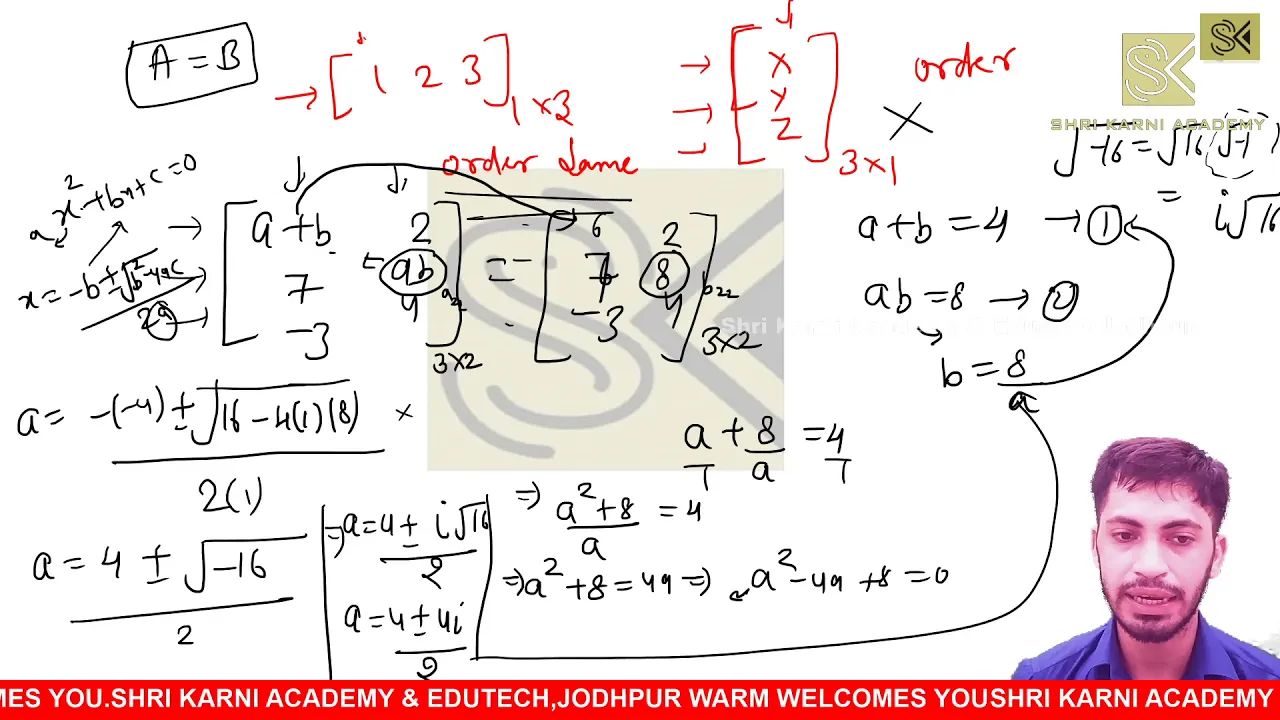 A = B
→ [1 2 3] 1×3
→ [x y z] 3×1
order
SHRI KARNI ACADEMY
order same
√-16 = √16 (√-1)
= i√16
ax²+bx+c=0
x = -b±√b²-4ac / 2a
[a+b 2
7 ab
-3 4] 3×2
=
[6 2
7 8
-3 4] 3×2
a22
b22
a+b = 4 → ①
ab = 8 → ②
b = 8/a
a = -(-4) ± √16-4(1)(8) / 2(1)
a/1 + 8/a = 4/1
a = 4 ± √-16 / 2
⇒ a = 4 ± i√16 / 2
a = 4 ± 4i / 2
⇒ a²+8 / a = 4
⇒ a²+8 = 4a ⇒ a²-4a+8 = 0
MES YOU.SHRI KARNI ACADEMY & EDUTECH,JODHPUR WARM WELCOMES YOUSHRI KARNI ACADEMY